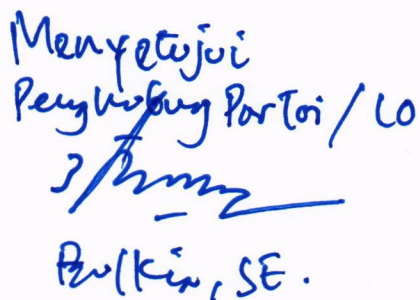 Menyetujui
Penghubung Partai / LO
SE.